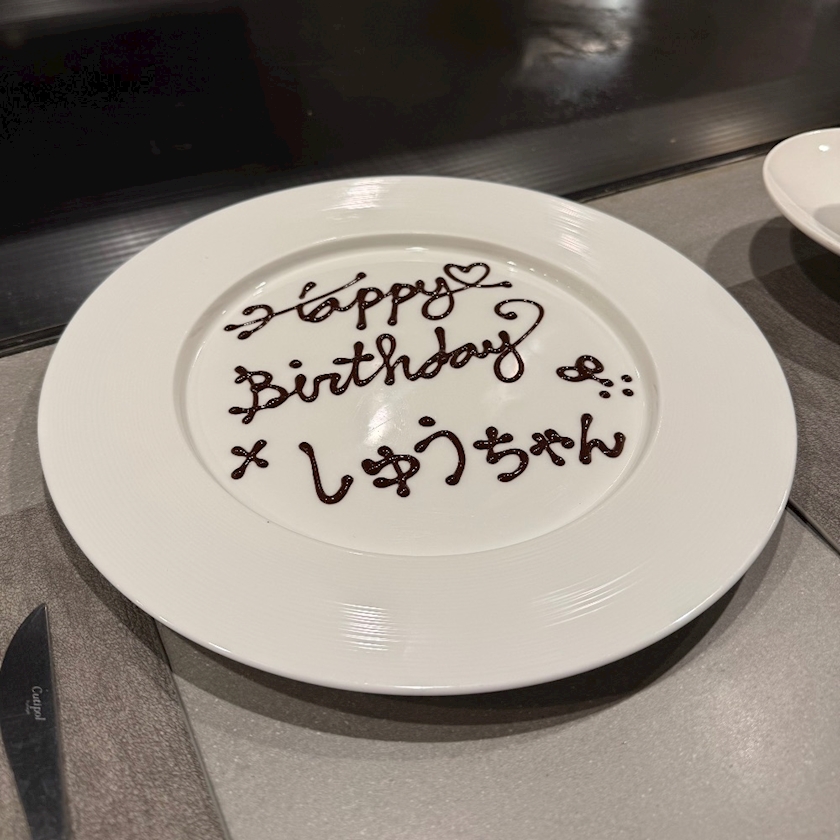 Happy
Birthday
しゅうちゃん
Cutipol